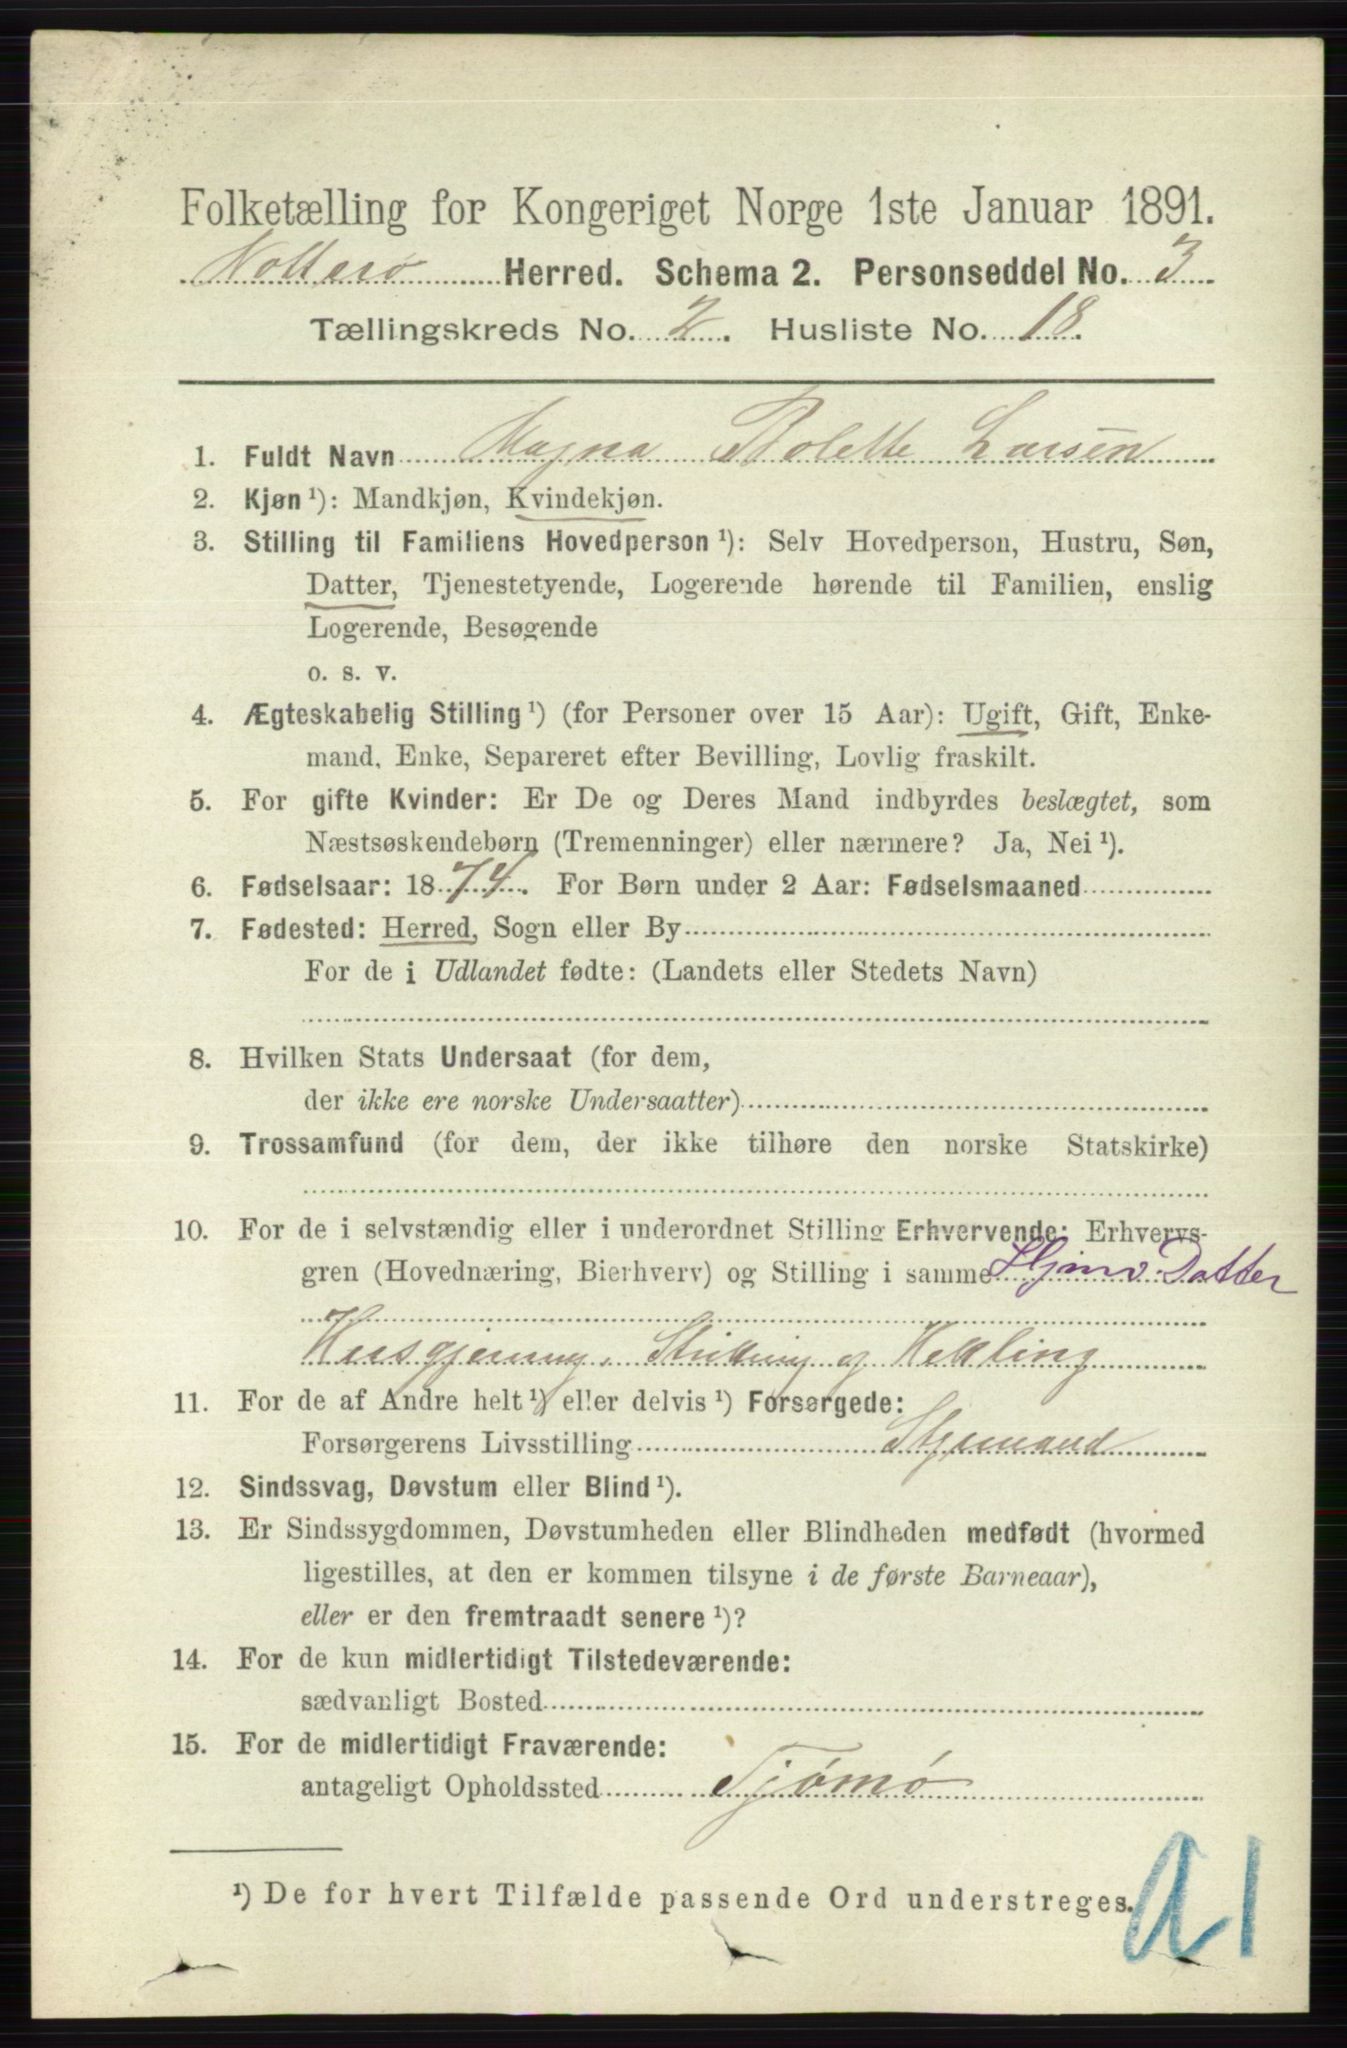 Folketælling for Kongeriget Norge 1ste Januar 1891.
Nøtterø Herred. Schema 2. Personseddel No. 3
Tællingskreds No. 2. Husliste No. 18.
1. Fuldt Navn Magna Bolette Larsen
2. Kjøn ¹): Mandkjøn, Kvindekjøn.
3. Stilling til Familiens Hovedperson ¹): Selv Hovedperson, Hustru, Søn,
Datter, Tjenestetyende, Logerende hørende til Familien, enslig
Logerende, Besøgende
o. s. v.
4. Ægteskabelig Stilling ¹) (for Personer over 15 Aar): Ugift, Gift, Enke-
mand, Enke, Separeret efter Bevilling, Lovlig fraskilt.
5. For gifte Kvinder: Er De og Deres Mand indbyrdes beslægtet, som
Næstsøskendebørn (Tremenninger) eller nærmere? Ja, Nei ¹).
6. Fødselsaar: 1874. For Børn under 2 Aar: Fødselsmaaned
7. Fødested: Herred, Sogn eller By
For de i Udlandet fødte: (Landets eller Stedets Navn)
8. Hvilken Stats Undersaat (for dem,
der ikke ere norske Undersaatter)
9. Trossamfund (for dem, der ikke tilhøre den norske Statskirke)
10. For de i selvstændig eller i underordnet Stilling Erhvervende: Erhvervs-
gren (Hovednæring, Bierhverv) og Stilling i samme Hjmv. Datter
Husgjerning, Strikking og Hekling
11. For de af Andre helt ¹) eller delvis ¹) Forsørgede:
Forsørgerens Livsstilling Styrmand
12. Sindssvag, Døvstum eller Blind ¹).
13. Er Sindssygdommen, Døvstumheden eller Blindheden medfødt (hvormed
ligestilles, at den er kommen tilsyne i de første Barneaar),
eller er den fremtraadt senere ¹)?
14. For de kun midlertidigt Tilstedeværende:
sædvanligt Bosted
15. For de midlertidigt Fraværende:
antageligt Opholdssted Tjømø
¹) De for hvert Tilfælde passende Ord understreges.
a1